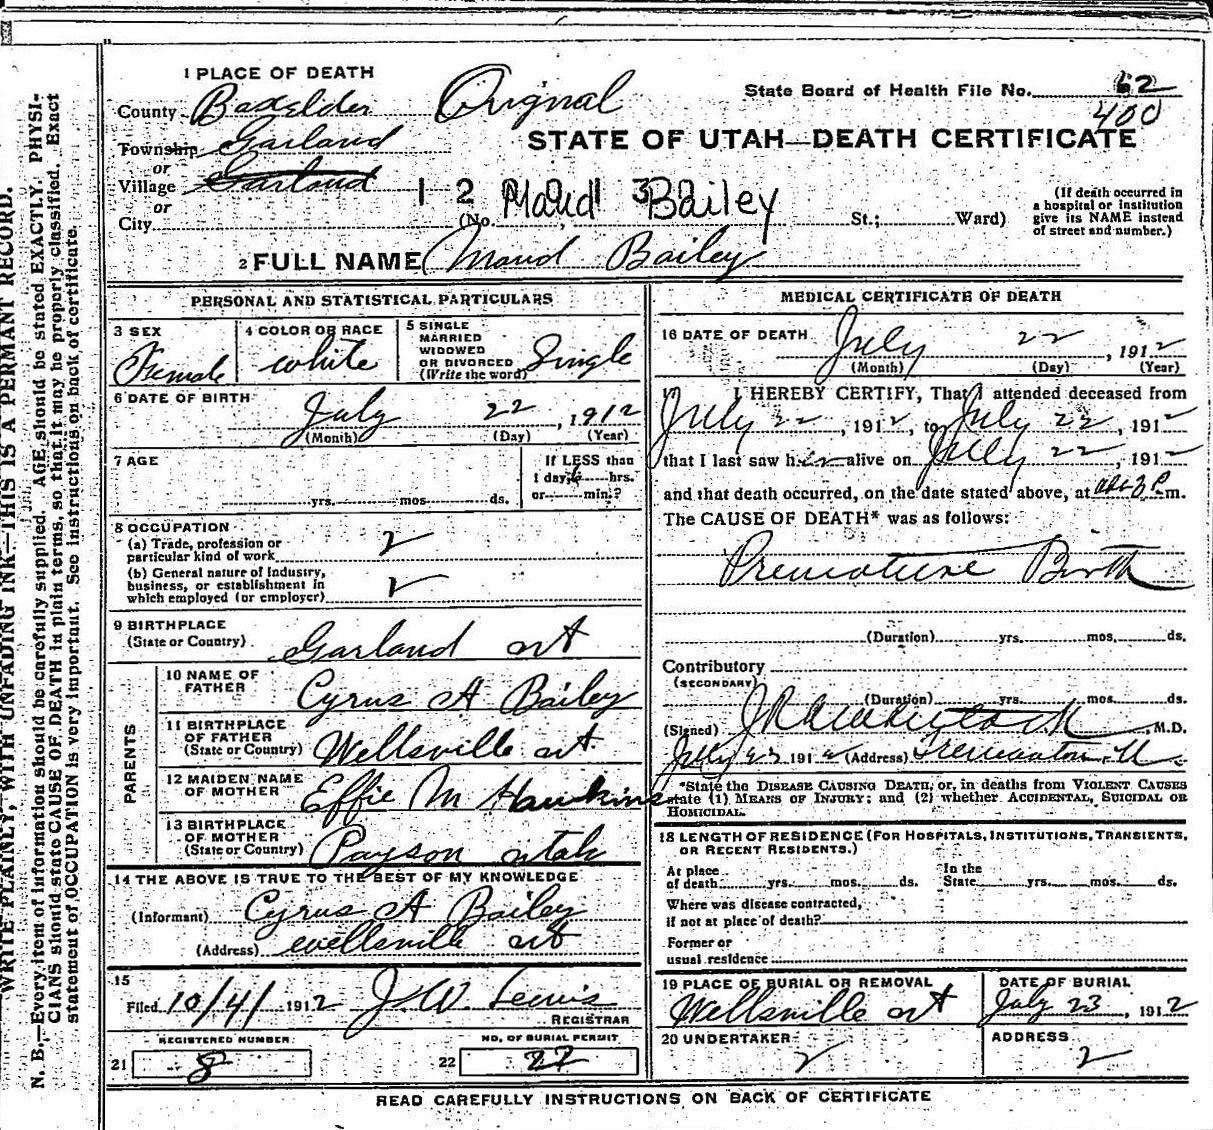 1 PLACE OF DEATH
County Boxelder Original
State Board of Health File No. 62
400
Township Garland
or
STATE OF UTAH—DEATH CERTIFICATE
Village Garland
or
City
1 2 Maud 3 Bailey
(No. , St.; Ward)
(If death occurred in
a hospital or institution
give its NAME instead
of street and number.)
2 FULL NAME Maud Bailey
PERSONAL AND STATISTICAL PARTICULARS
3 SEX
Female
4 COLOR OR RACE
white
5 SINGLE
MARRIED
WIDOWED
OR DIVORCED
(Write the word)
Single
6 DATE OF BIRTH
July 22, 1912
(Month) (Day) (Year)
7 AGE
If LESS than
1 day, hrs.
or min.?
yrs. mos. ds.
8 OCCUPATION
(a) Trade, profession or
particular kind of work
(b) General nature of Industry,
business, or establishment in
which employed (or employer)
9 BIRTHPLACE
(State or Country) Garland ut
PARENTS
10 NAME OF
FATHER Cyrus A Bailey
11 BIRTHPLACE
OF FATHER
(State or Country) Wellsville ut.
12 MAIDEN NAME
OF MOTHER Effie M Hawkins
13 BIRTHPLACE
OF MOTHER
(State or Country) Payson utah
14 THE ABOVE IS TRUE TO THE BEST OF MY KNOWLEDGE
(Informant) Cyrus A Bailey
(Address) wellsville ut
15
Filed 10/4/ 1912 J. W. Lewis
REGISTRAR
REGISTERED NUMBER
21 8
NO. OF BURIAL PERMIT
22 27
MEDICAL CERTIFICATE OF DEATH
16 DATE OF DEATH July 22, 1912
(Month) (Day) (Year)
17 I HEREBY CERTIFY, That I attended deceased from
July 22, 1912, to July 22, 1912
that I last saw her alive on July 22, 1912
and that death occurred, on the date stated above, at abt 3 P. m.
The CAUSE OF DEATH* was as follows:
Premature Birth
(Duration) yrs. mos. ds.
Contributory
(SECONDARY)
(Duration) yrs. mos. ds.
(Signed) M.D.
July 23 1912 (Address) Tremonton, U
*State the DISEASE CAUSING DEATH; or, in deaths from VIOLENT CAUSES
state (1) MEANS OF INJURY; and (2) whether ACCIDENTAL, SUICIDAL OR
HOMICIDAL.
18 LENGTH OF RESIDENCE (FOR HOSPITALS, INSTITUTIONS, TRANSIENTS,
OR RECENT RESIDENTS.)
At place
of death yrs. mos. ds.
In the
State yrs. mos. ds.
Where was disease contracted,
if not at place of death?
Former or
usual residence
19 PLACE OF BURIAL OR REMOVAL
Wellsville ut
DATE OF BURIAL
July 23, 1912
20 UNDERTAKER
ADDRESS
READ CAREFULLY INSTRUCTIONS ON BACK OF CERTIFICATE
WRITE PLAINLY, WITH UNFADING INK—THIS IS A PERMANT RECORD.
N. B.—Every item of information should be carefully supplied. AGE should be stated EXACTLY. PHYSI-
CIANS should state CAUSE OF DEATH in plain terms, so that it may be properly classified. Exact
statement of OCCUPATION is very important. See instructions on back of certificate.